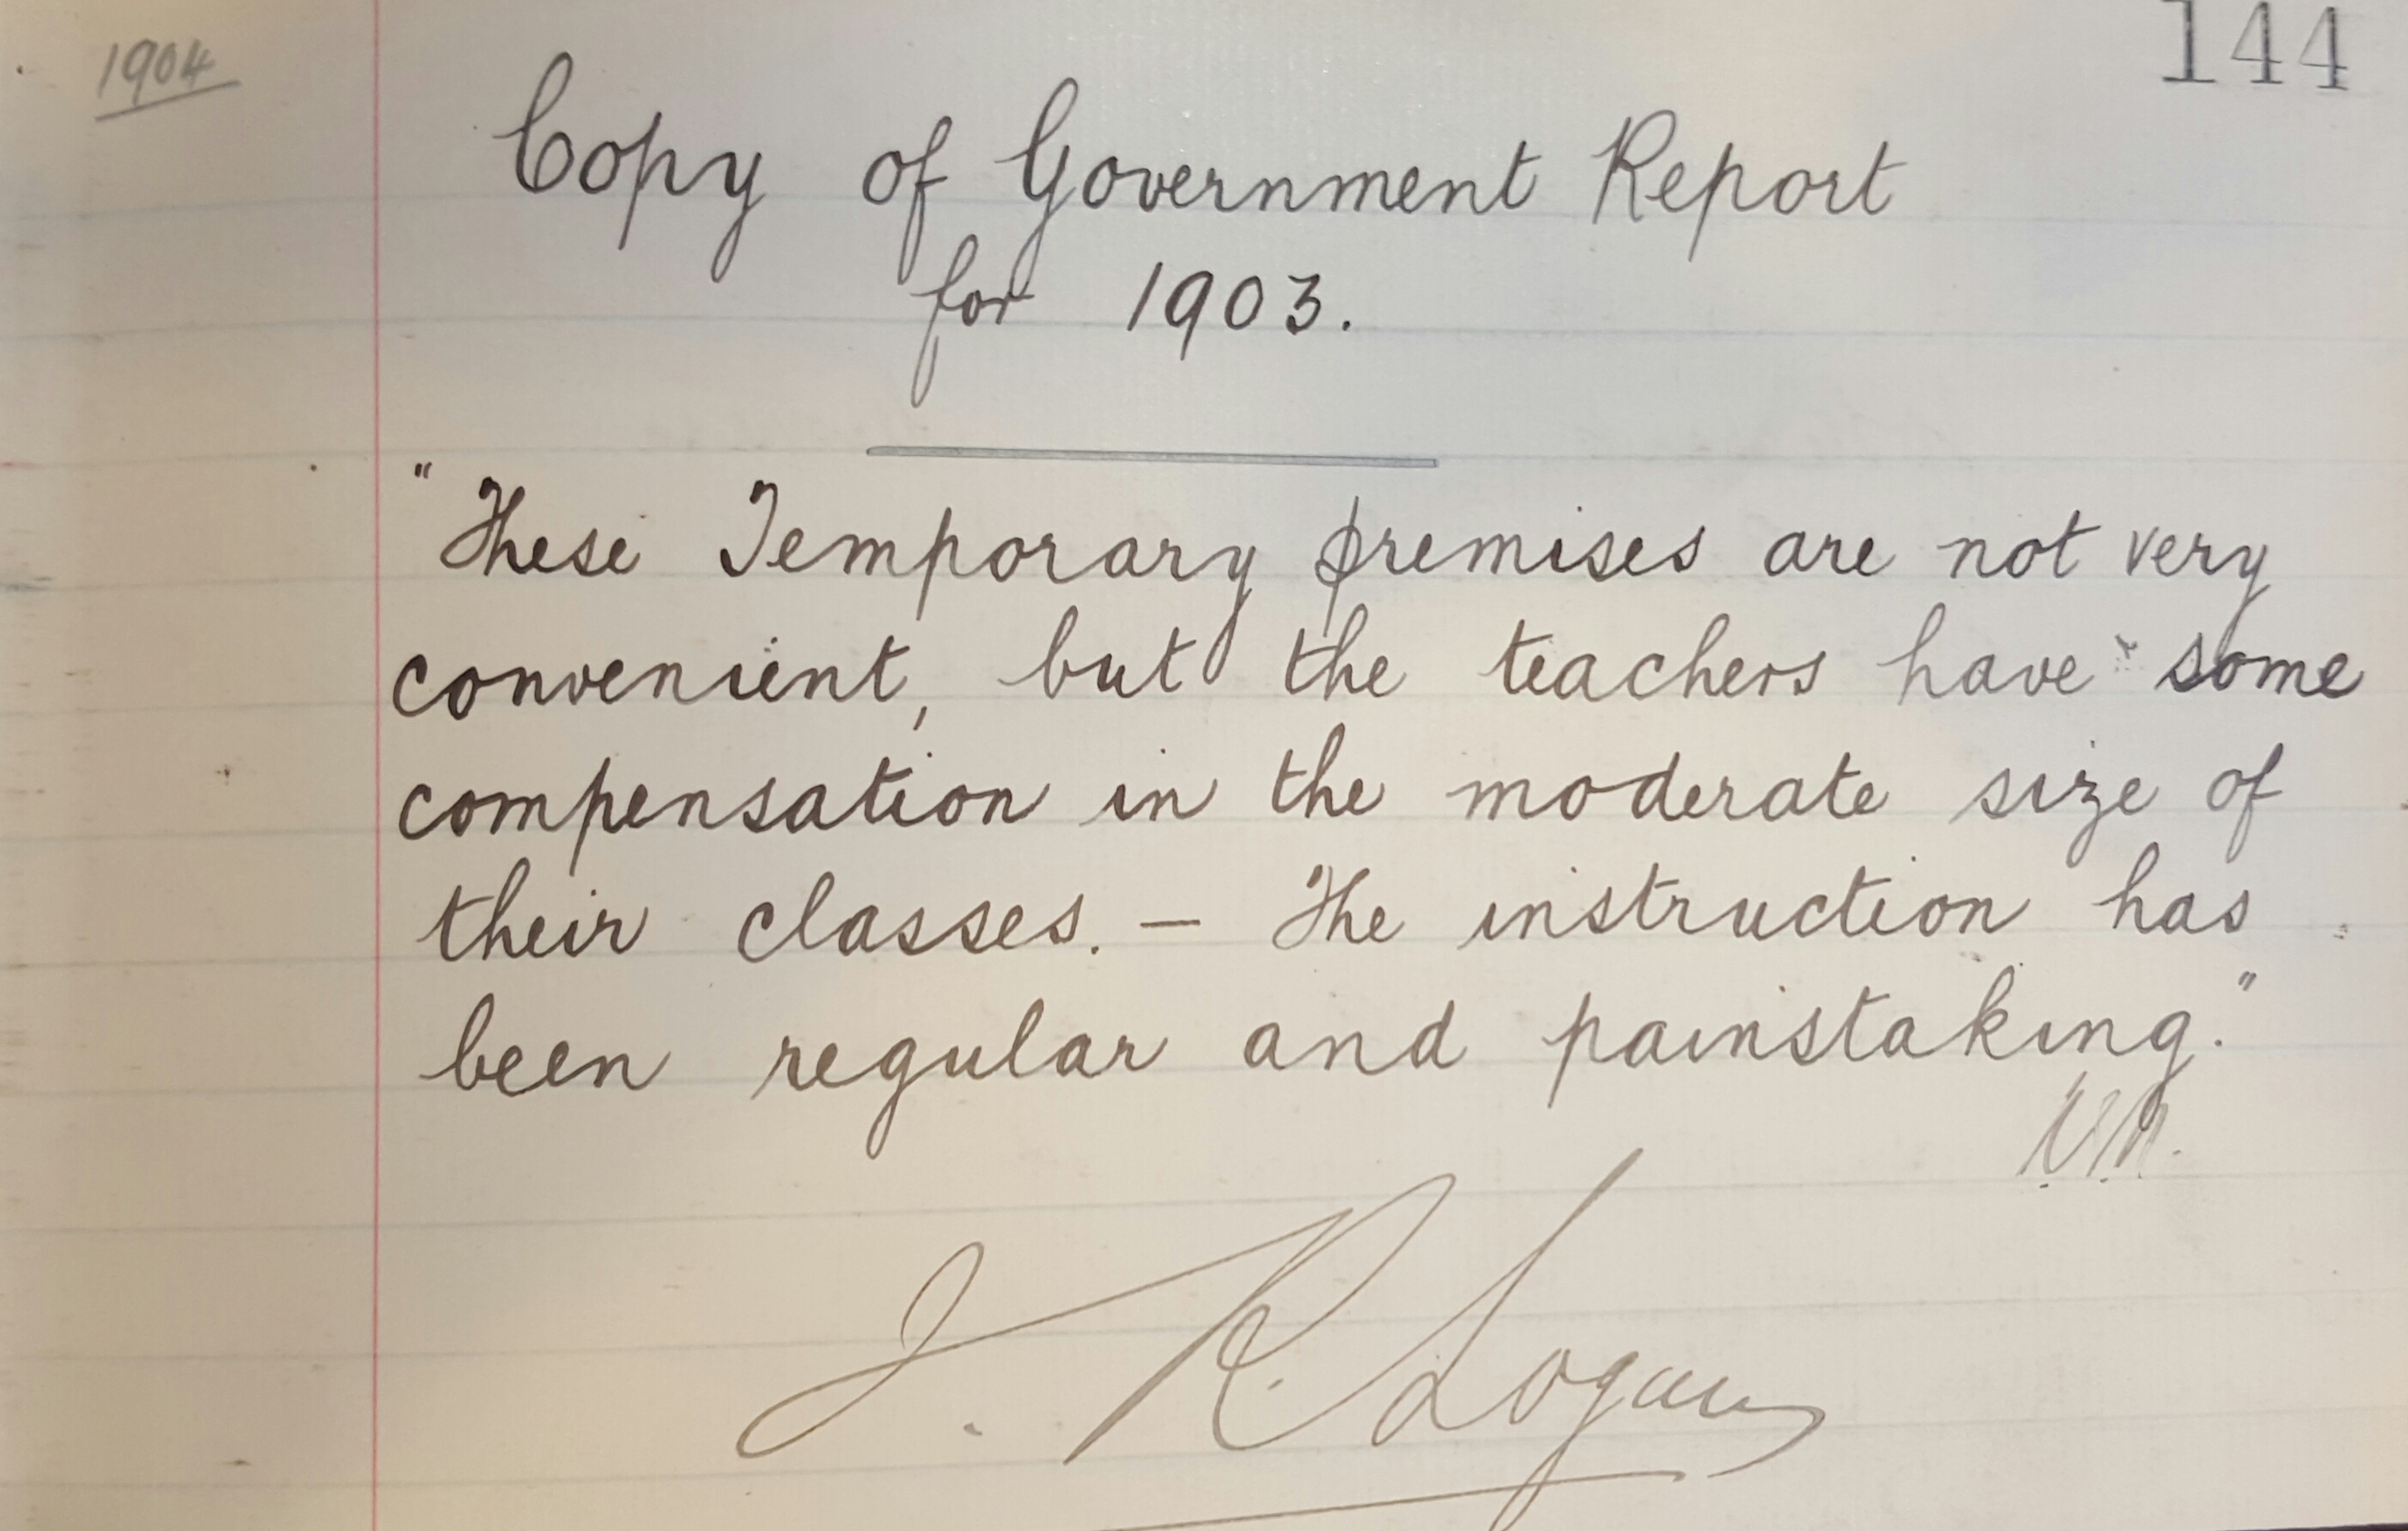 1904
144
Copy of Government Report
for 1903.
"These Temporary premises are not very
convenient, but the teachers have some
compensation in the moderate size of
their classes. – The instruction has
been regular and painstaking."
J. R. Logan